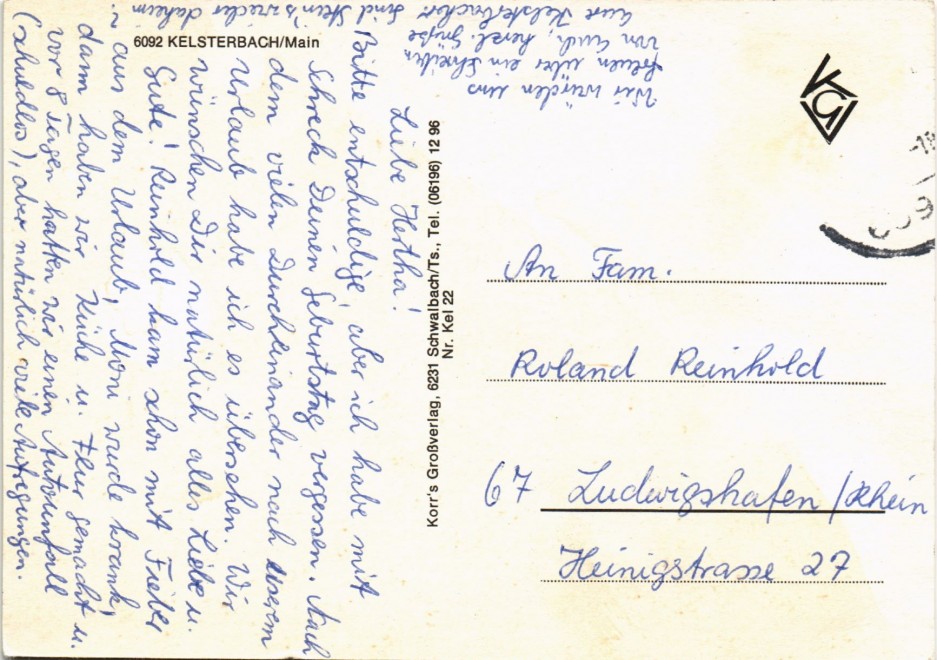 6092 KELSTERBACH/Main
Liebe Hertha!
Bitte entschuldige, aber ich habe mit
Schreck Deinen Geburtstag vergessen. Nach
dem vielen Durcheinander nach unserem
Urlaub habe ich es übersehen. Wir
wünschen Dir natürlich alles Liebe u.
Gute! Reinhold kam schon mit Fieber
aus dem Urlaub, Moni wurde krank,
dann haben wir Küche u. Flur gemacht u.
vor 8 Tagen hatten wir einen Autounfall
(schuldlos), aber natürlich viele Aufregungen.
sind Stein's wieder daheim
Wir würden uns
freuen über ein Schreiben
von Euch, herzl. Grüße
Eure Kelsterbacher
Korr's Großverlag, 6231 Schwalbach/Ts., Tel. (06196) 12 96
Nr. Kel 22
An Fam.
Roland Reinhold
67 Ludwigshafen/Rhein
Heinigstrasse 27